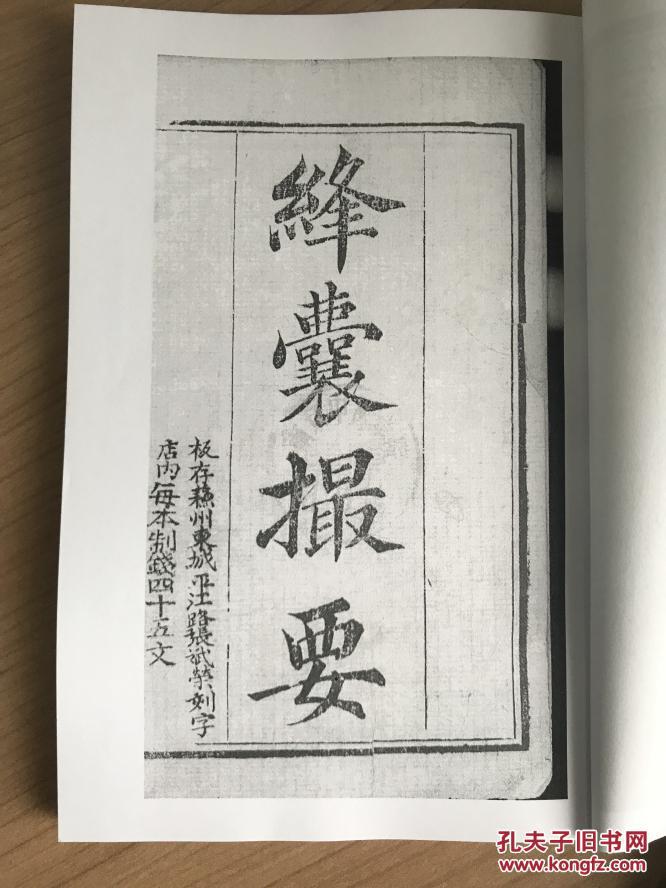 縫囊撮要
板存蘇州東城平江路張斌榮刻字
店內每本制錢四十五文
孔夫子旧书网
www.kongfz.com